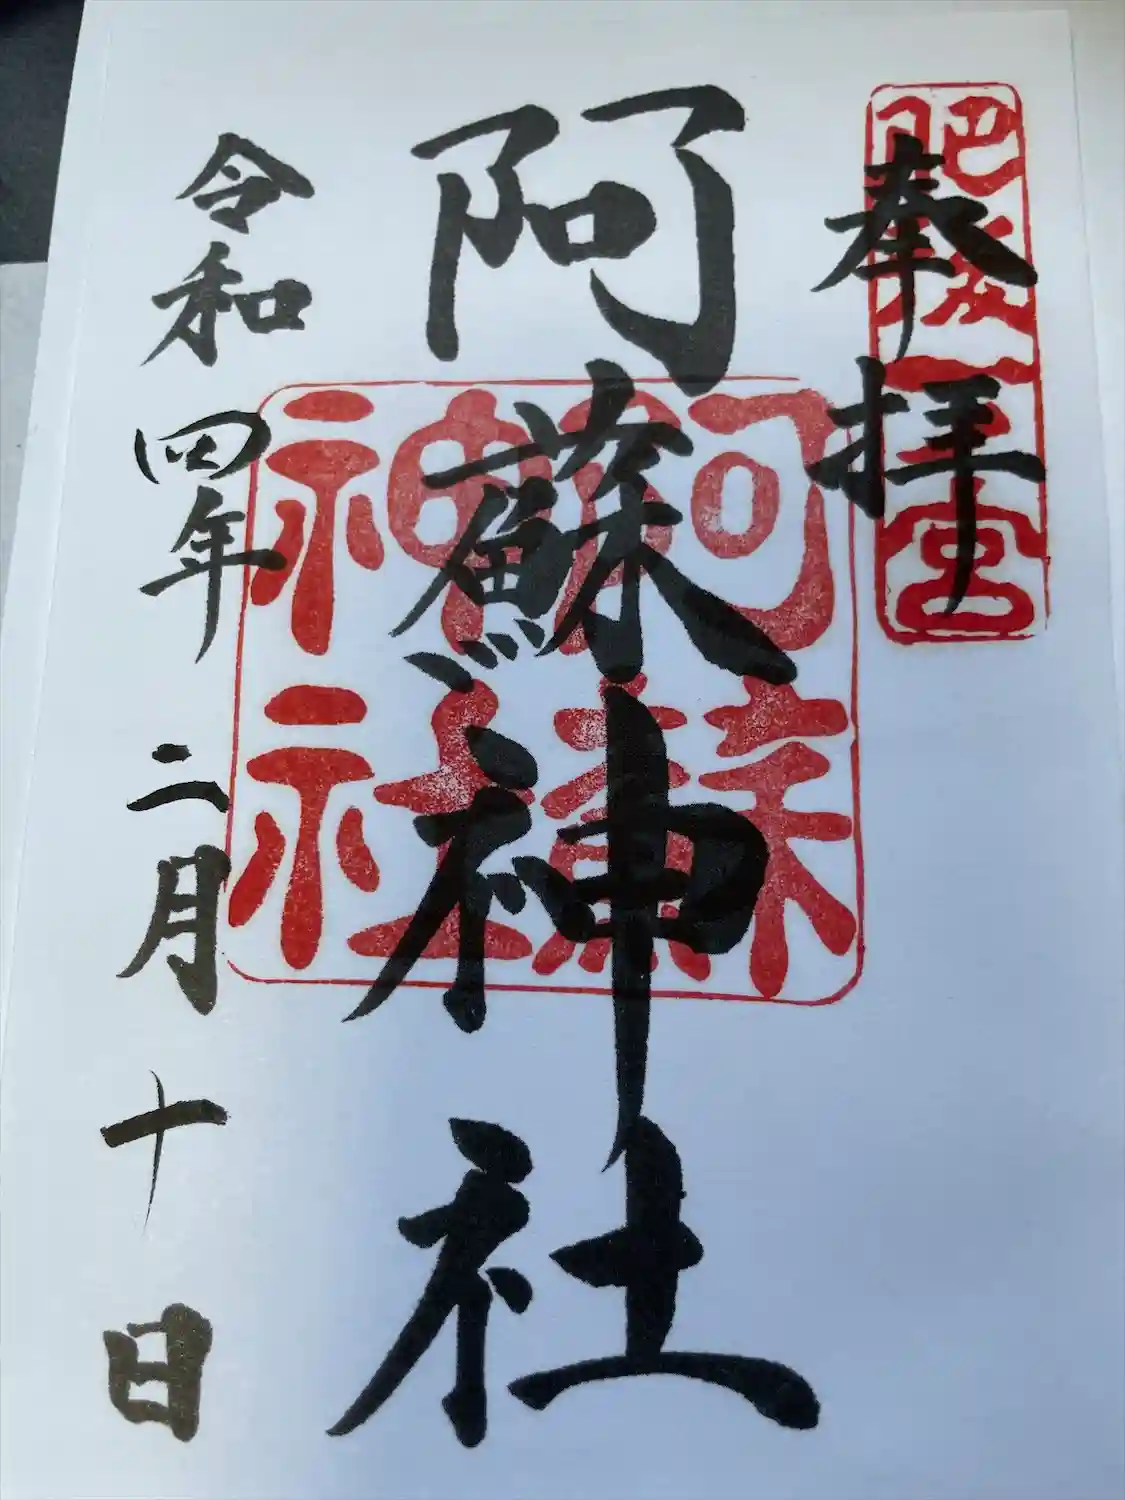 奉拝
肥後一宮
阿蘇神社
阿蘇神社
令和四年二月十日